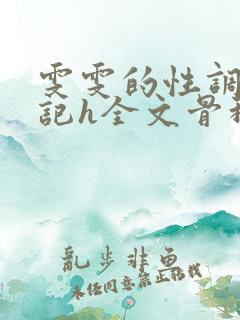 雯雯的性調
記h全文骨
亂步非魚
未任同意禁止临栈